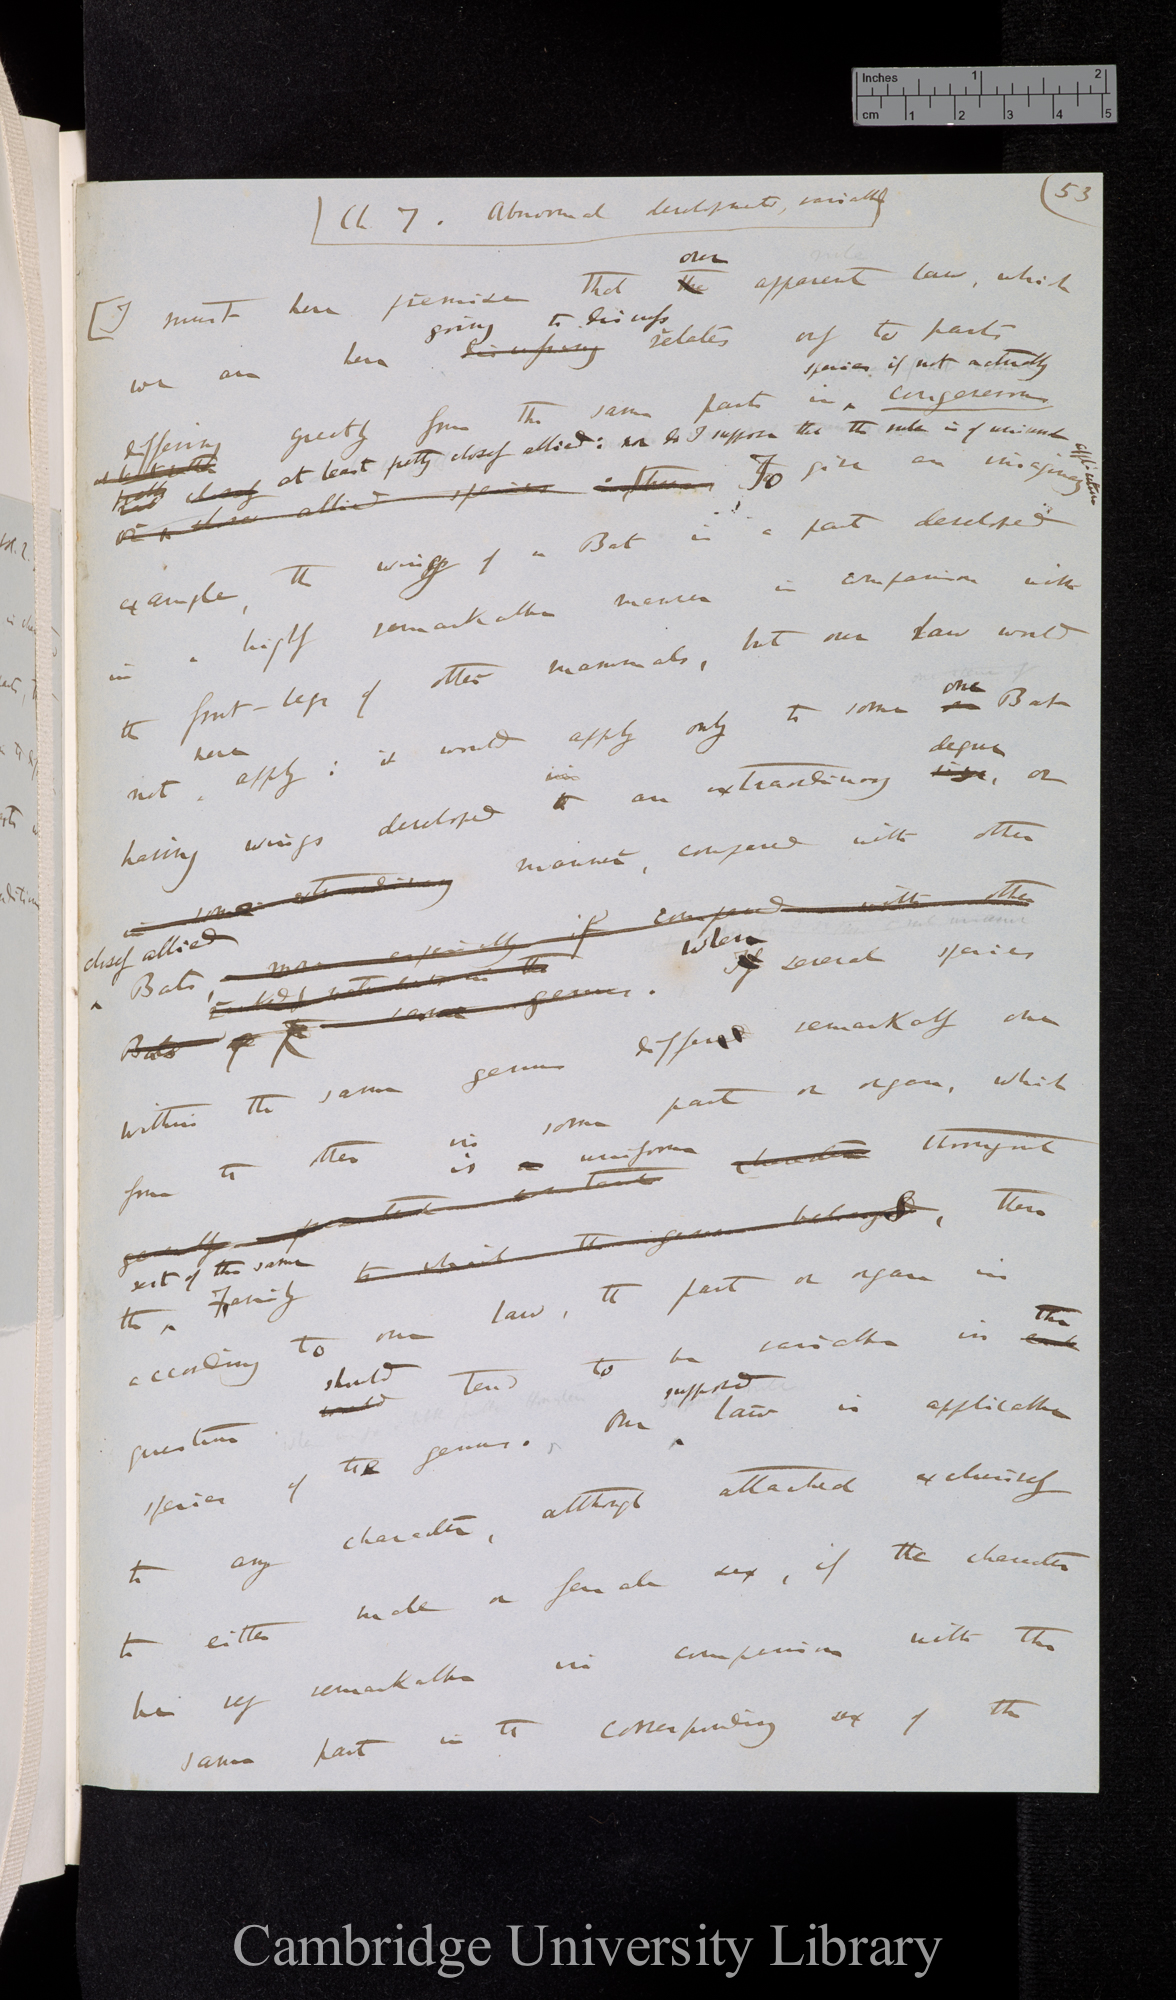 Inches 1 2
cm 1 2 3 4 5
(53
Ch 7. Abnormal developments, variable
[I must here premise that the our apparent law, which
we are here discussing going to discuss relates only to parts
differing greatly from the same parts in species if not actually congenerous
at least pretty closely allied: nor do I suppose that the rule is of universal application
or in closely allied species To give an imaginary
example, the wing of a Bat is a part developed
in a highly remarkable manner in comparison with
the front-legs of other mammals, but our law would
not here apply: it would apply only to some one Bat
having wings developed in an extraordinary size degree, or
in some extraordinary manner, compared with other
closely allied Bats, more especially if compared with other
Bats of the same genus. If When several species
within the same genus differed remarkably one
from the other in some part or organ, which
generally is uniform character throughout
the rest of the same Family to which the genus belongs, then
according to our law, the part or organ in
question would should tend to be variable in each the
species of the genus. Our supposed law is applicable
to any character, although attached exclusively
to either male or female sex, if the character
be very remarkable in comparison with the
same part in the corresponding sex of the
Cambridge University Library